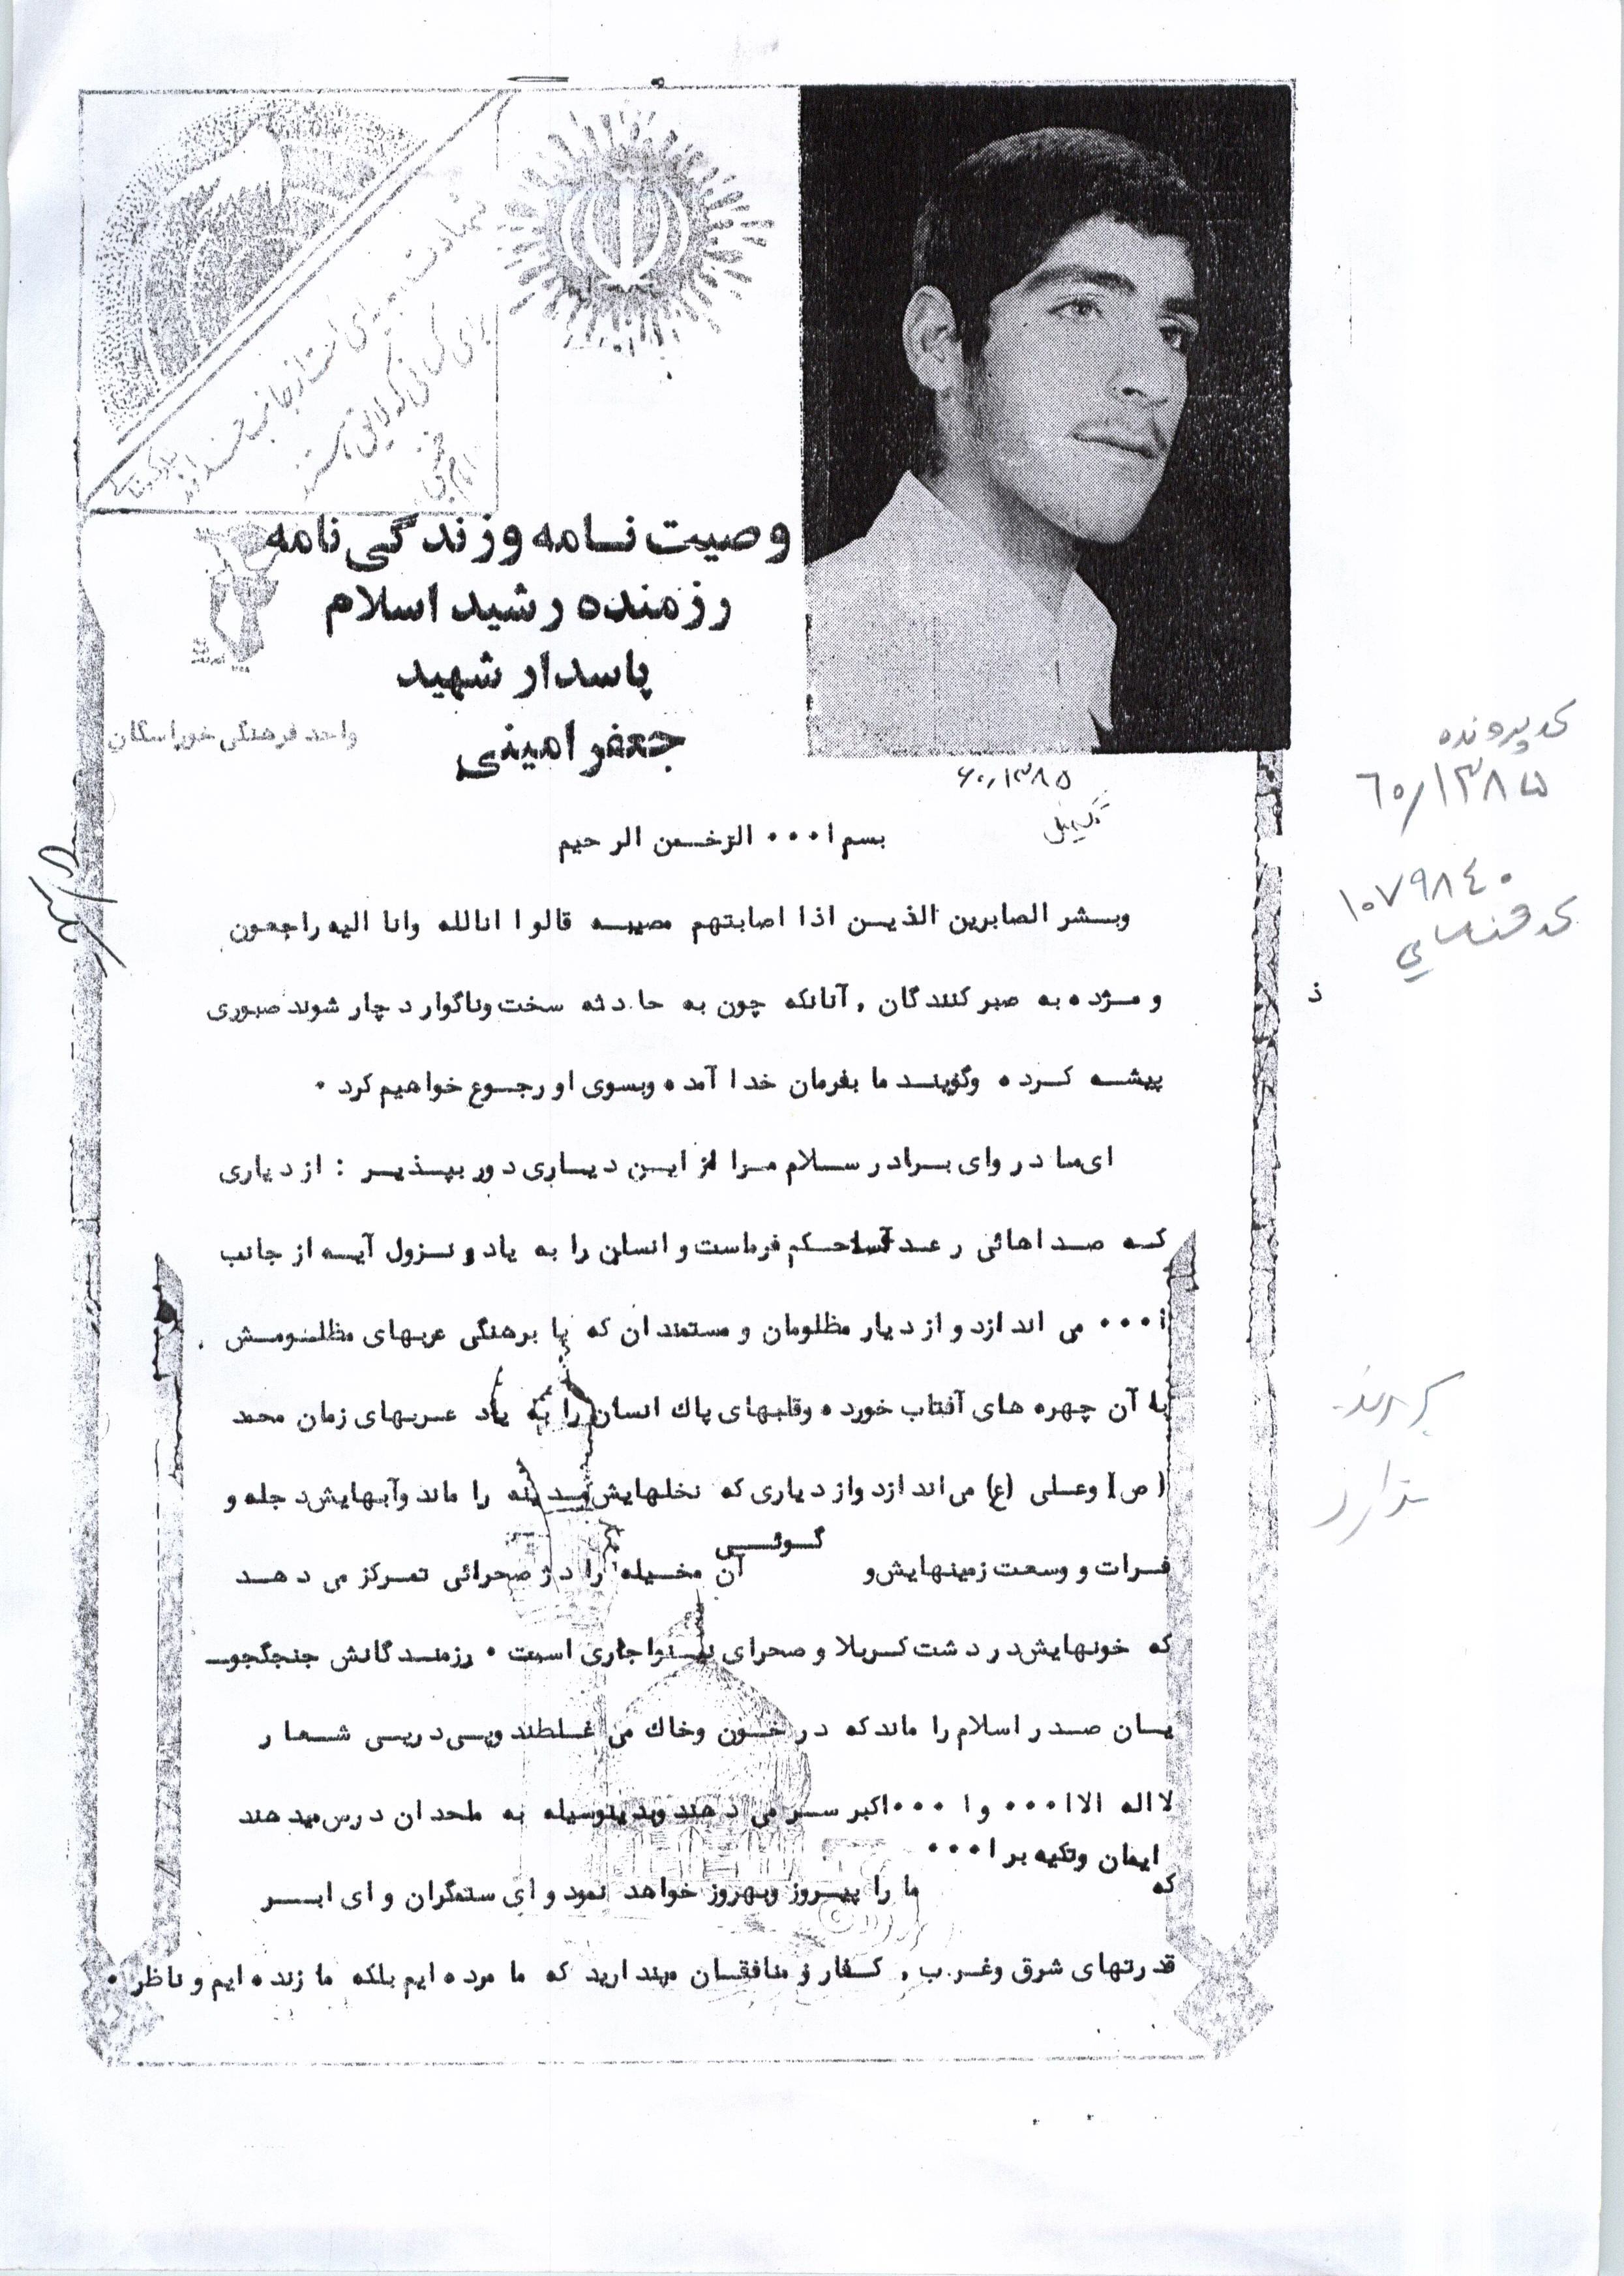 شهادت هدیه‌ای است از جانب خداوند تبارک و تعالی
برای کسانی که لایق هستند
امام خمینی
وصیت نامه و زندگی نامه
رزمنده رشید اسلام
پاسدار شهید
جعفر امینی
واحد فرهنگی خوراسگان
۶۰/۱۳۸۵
کد پرونده
۶۰/۱۳۸۵
۱۰۷۹۸۴۰
کد شناسایی
بسم ا... الرحمن الرحیم
وبشر الصابرین الذین اذا اصابتهم مصیبه قالوا انالله وانا الیه راجعون
و مژده به صبر کنندگان , آنانکه چون به حادثه سخت وناگوار دچار شوند صبوری
ذ
پیشه کرده وگویند ما بفرمان خدا آمده وبسوی او رجوع خواهیم کرد .
ای مادر وای برادر سلام مرا از این دیاری دور بپذیر : از دیاری
که صداهائی رعد آسا حکم فرماست و انسان را به یاد و نزول آیه از جانب
ا... می اندازد و از دیار مظلومان و مستمندان که پا برهنگی عربهای مظلومش .
با آن چهره های آفتاب خورده وقلبهای پاك انسان را به یاد عربهای زمان محمد
(ص) وعلی (ع) می اندازد واز دیاری که نخلهایش مدینه را ماند وآبهایش دجله و
فرات و وسعت زمینهایش و گوئی آن مخیله را در صحرائی تمرکز می دهد
که خونهایش در دشت کربلا و صحرای نینوا جاری است . رزمندگانش جنجگجو
یان صدر اسلام را ماند که در خون وخاك می غلطند وپی درپی شعار
لااله الاا... وا ...اکبر سر می دهند وبدینوسیله به ملحدان درس میدهند
که ایمان وتکیه بر ا... ما را پیروز وبهروز خواهد نمود و ای ستمگران و ای ابر
قدرتهای شرق وغرب , کفار و منافقان مپندارید که ما مرده ایم بلکه ما زنده ایم و ناظر .